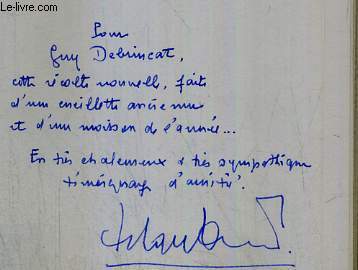 Le-livre.com
Pour
Guy Debrincat,
cette récolte nouvelle, faite
d'une cueillette ancienne
et d'une moisson de l'année...
En très chaleureux & très sympathique
témoignage d'amitié.